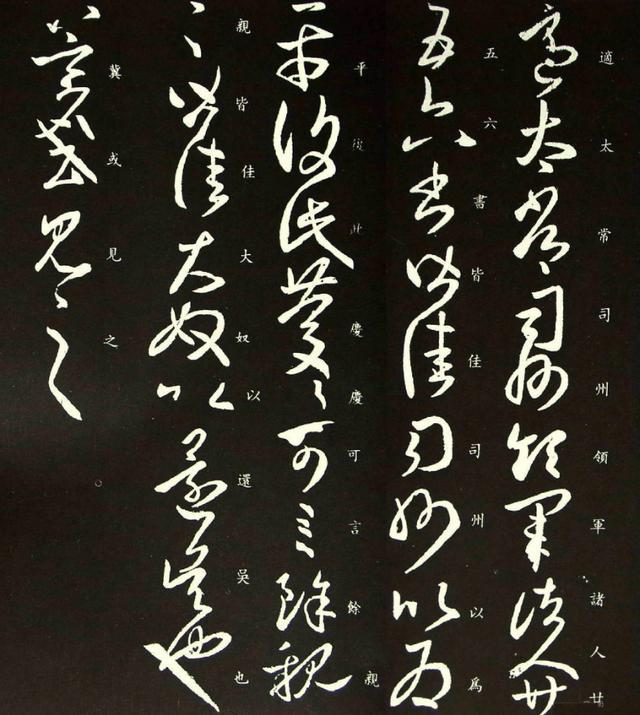 適太常司州領軍諸人廿
五六書皆佳司州以為
平復此慶慶可言餘親
親皆佳大奴以還吳也
冀或見之